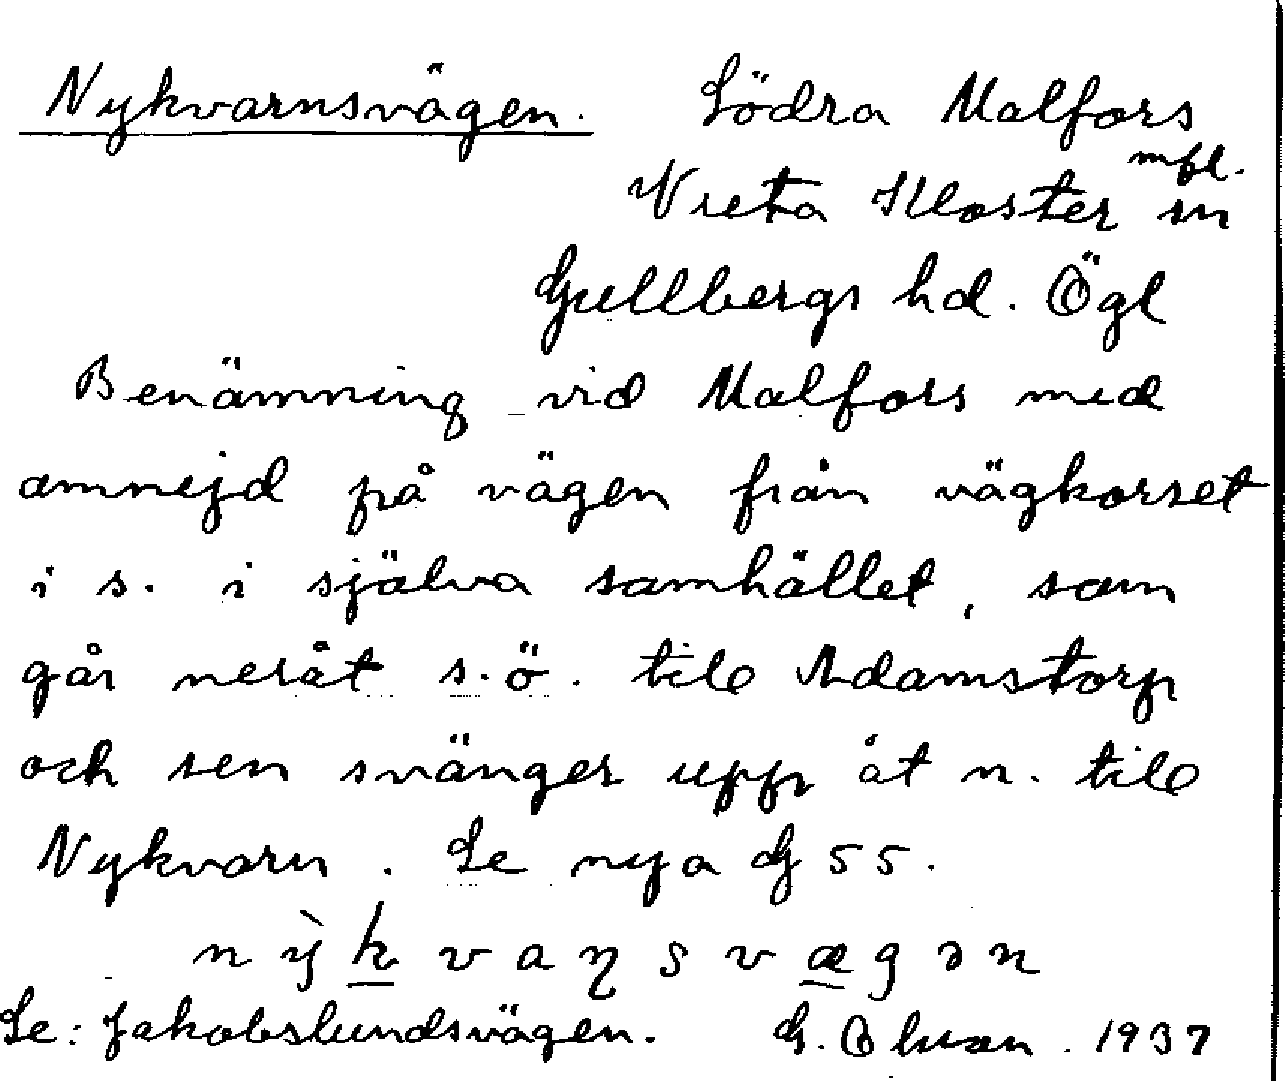 Nykvarnsvägen. Södra Malfors
mfl.
Vreta Kloster sn
Gullbergs hd. Ögl
Benämning vid Malfors med
omnejd på vägen från vägkorset
i s. i själva samhället, som
går neråt s.ö. till Adamstorp
och sen svänger upp åt n. till
Nykvarn. Se nya G 55.
Se: Jakobslundsvägen. G. Olson. 1937